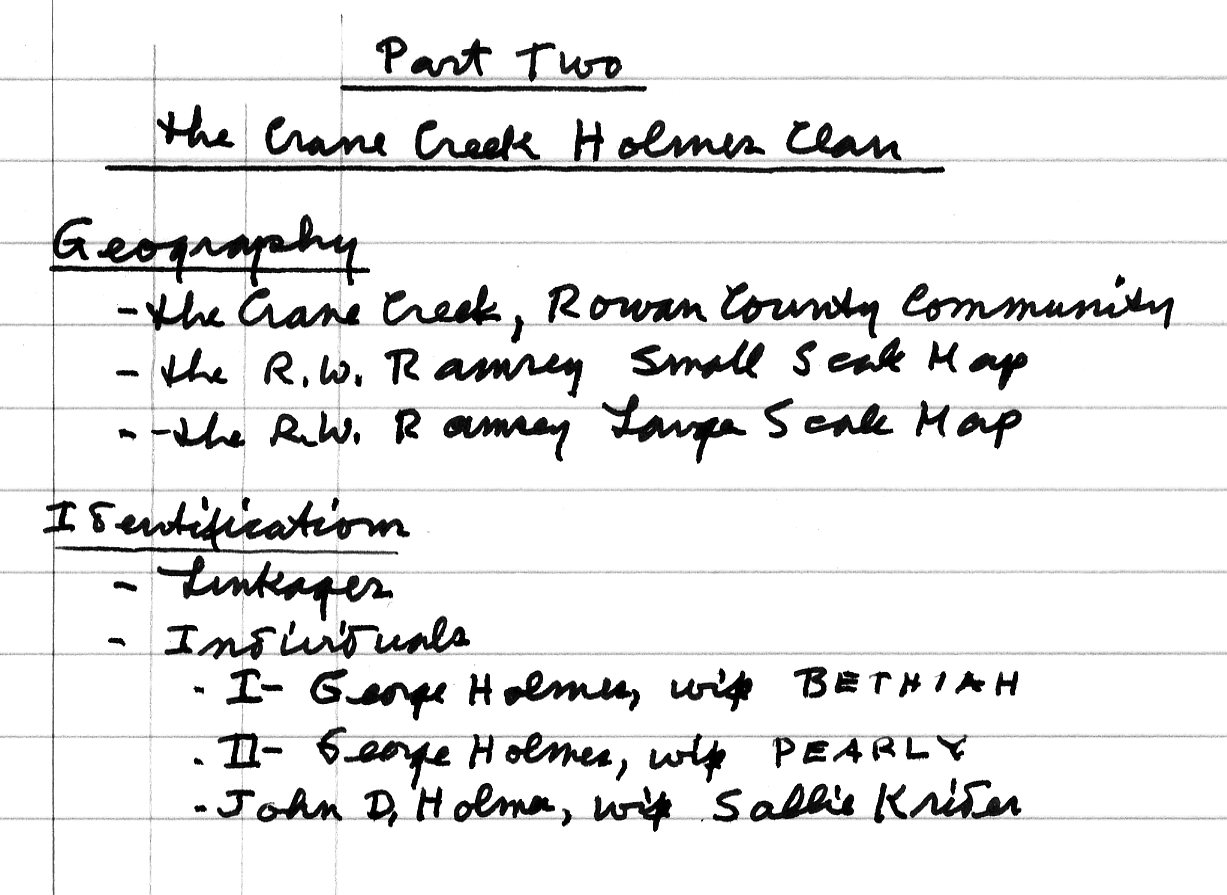 Part Two
the Crane Creek Holmes Clan
Geography
- the Crane Creek, Rowan County Community
- the R.W. Ramsey Small Scale Map
- - the R.W. Ramsey Large Scale Map
Identification
- Linkages
- Individuals
- I- George Holmes, wife BETHIAH
- II- George Holmes, wife PEARLY
- John D, Holmes, wife Sallie Krider